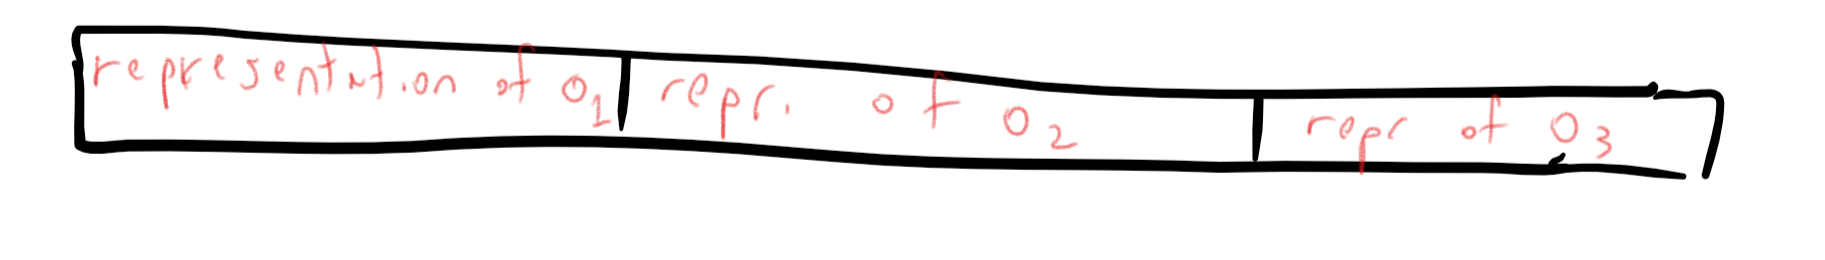 representation of O1 repr. of O2 repr of O3